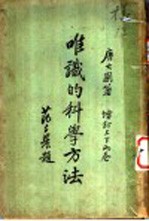 唐大圓著
增訂上下兩卷
唯識的科學方法
范古農題